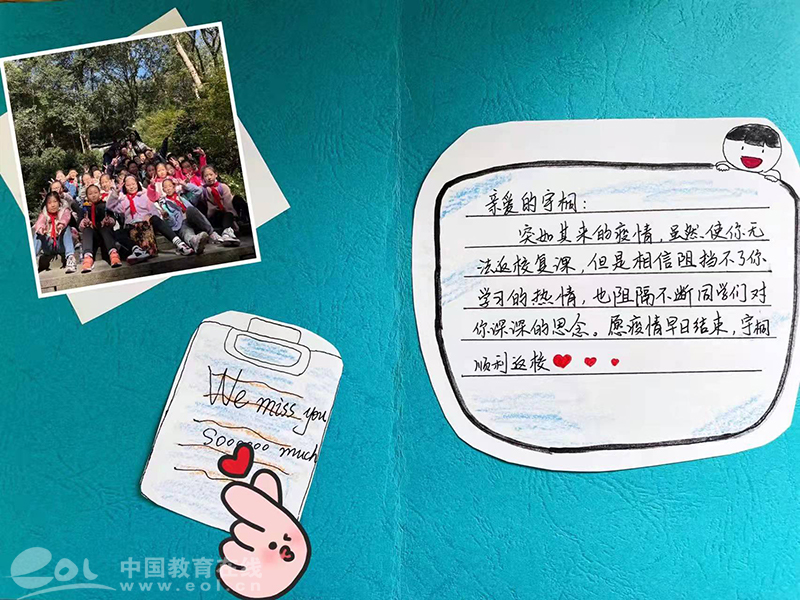 We miss you
Soooooo much
亲爱的宇桐：
突如其来的疫情，虽然使你无
法返校复课，但是相信阻挡不了你
学习的热情，也阻隔不断同学们对
你深深的思念。愿疫情早日结束，宇桐
顺利返校
eol 中国教育在线
www.eol.cn